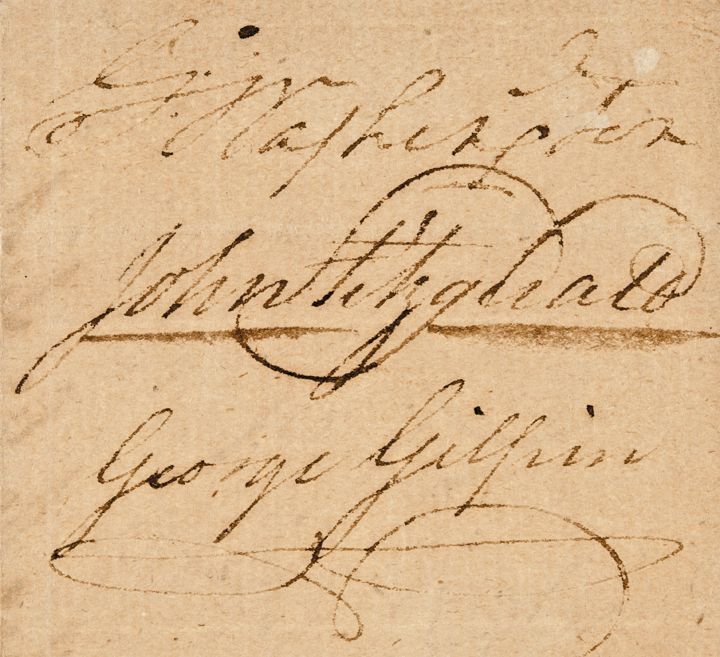 Go: Washington
John Fitzgerald
George Gilpin